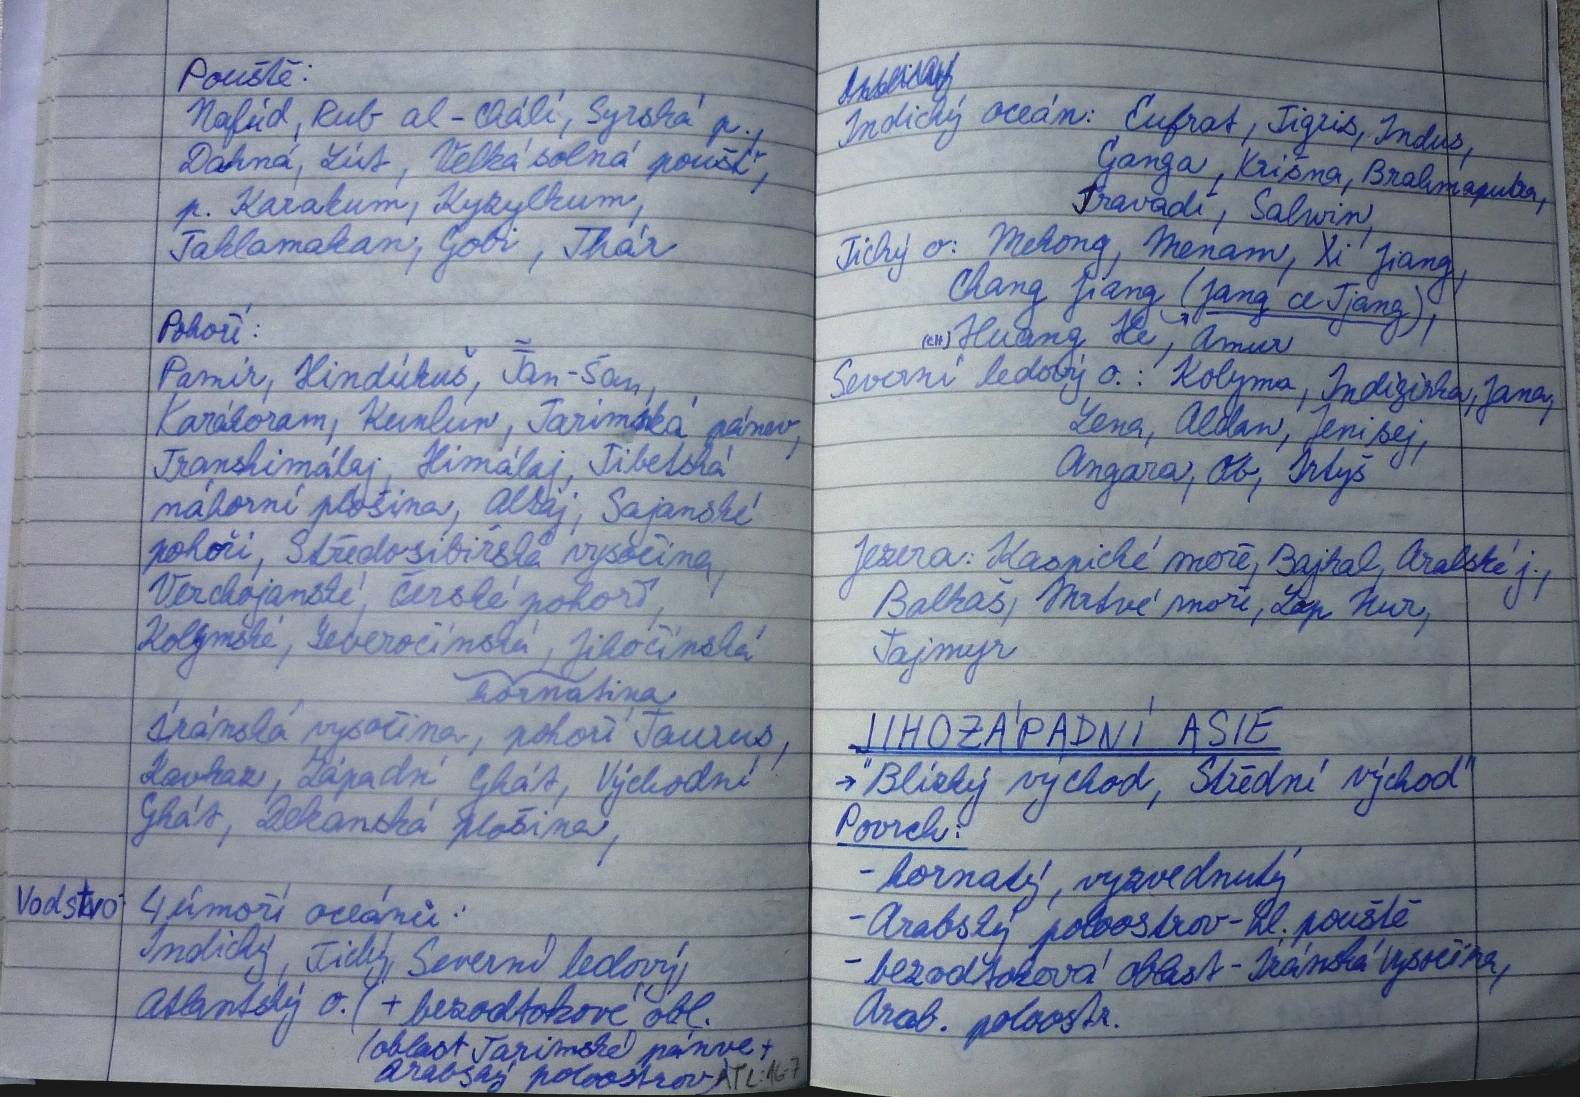 Pouště:
Nafúd, Rub al-Chálí, Syrská p.,
Dahná, Lút, Velká solná poušť,
p. Karakum, Kyzylkum,
Taklamakan, Gobi, Thár
Pohoří:
Pamír, Hindúkuš, Ťan-Šan,
Karákoram, Kunlun, Tarimská pánev,
Transhimálaj, Himálaj, Tibetská
náhorní plošina, Altaj, Sajanské
pohoří, Středosibiřská vysočina,
Verchojanské, Čerské pohoří,
Kolymské, Severočínská, Jihočínská
hornatina
Íránská vysočina, pohoří Taurus,
Kavkaz, Západní Ghát, Východní
Ghát, Dekanská plošina,
Vodstvo 4 úmoří oceánů:
Indický, Tichý, Severní ledový,
Atlantský o. (+ bezodtokové obl.
(oblast Tarimské pánve +
Arabský poloostrov) ATL: 16-7
Indický oceán: Eufrat, Tigris, Indus,
Ganga, Krišna, Brahmaputra,
Iravadi, Salwin,
Tichý o: Mekong, Menam, Xi Jiang,
Chang Jiang (Jang ce Tjang),
(CH) Huang He, Amur
Severní ledový o.: Kolyma, Indigirka, Jana,
Lena, Aldan, Jenisej,
Angara, Ob, Irtyš
Jezera: Kaspické moře, Bajkal, Aralské j.,
Balkaš, Mrtvé moře, Lop Nur,
Tajmyr
JIHOZÁPADNÍ ASIE
→ "Blízký východ, Střední východ"
Povrch:
- hornatý, vyzvednutý
- Arabský poloostrov - hl. pouště
- bezodtoková oblast - Íránská vysočina,
Arab. poloostr.